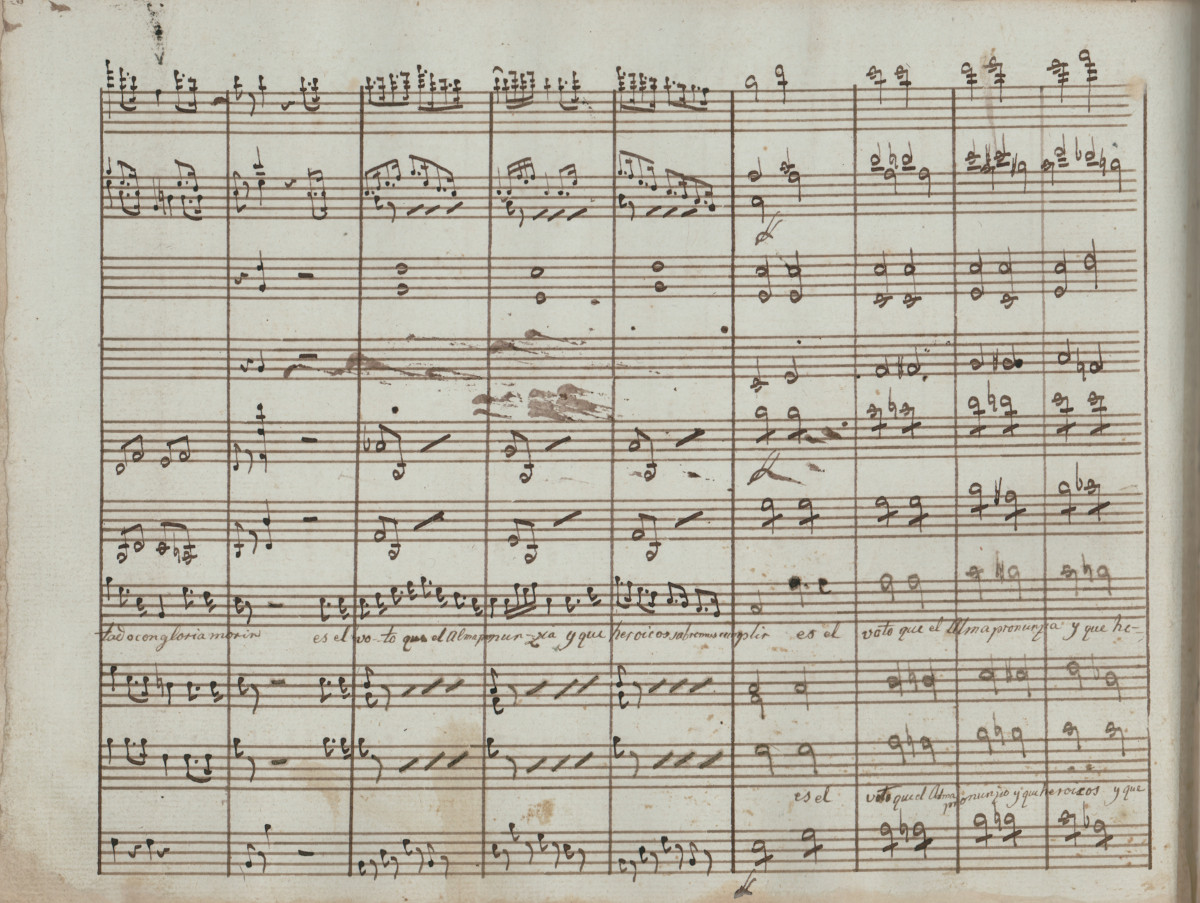 tado con gloria morir es el vo-to que el Alma pronun-xia y que heroicos sabremos cumplir es el voto que el Alma pronunxia y que he-
es el voto que el Alma pronunxio y que heroicos y que